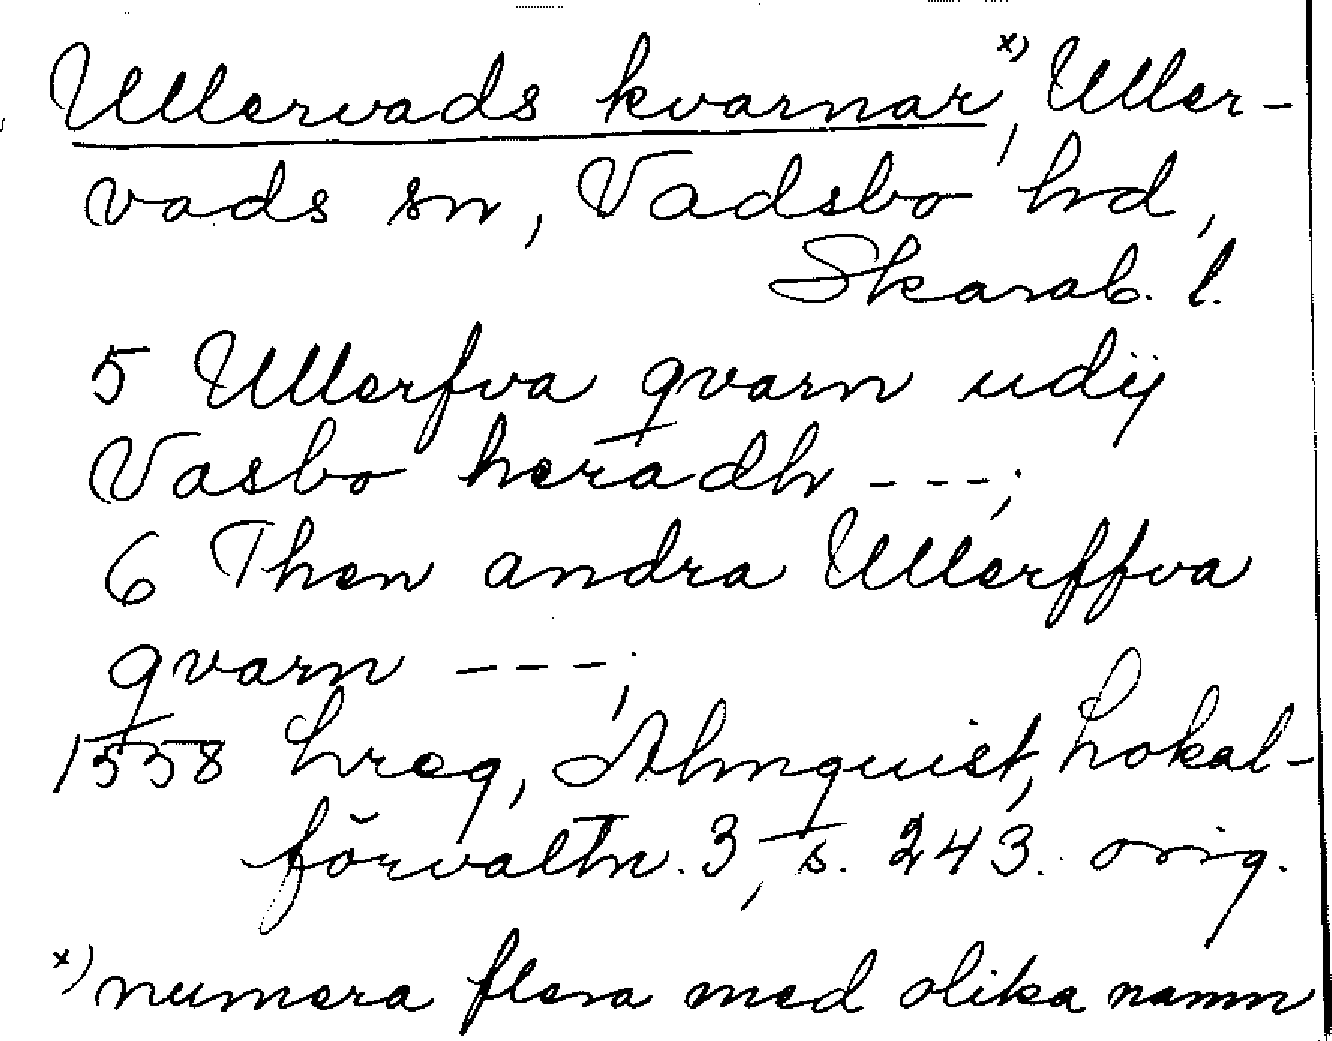 Ullervads kvarnar x), Uller-
vads sn, Vadsbo hd,
Skarab. l.
5 Ullerfva qvarn udij
Vasbo heradh ---;
6 Then andra Ullerffva
qvarn ---;
1558 hreg, Almquist, Lokal-
förvaltn. 3, s. 243. orig.
x) numera flera med olika namn